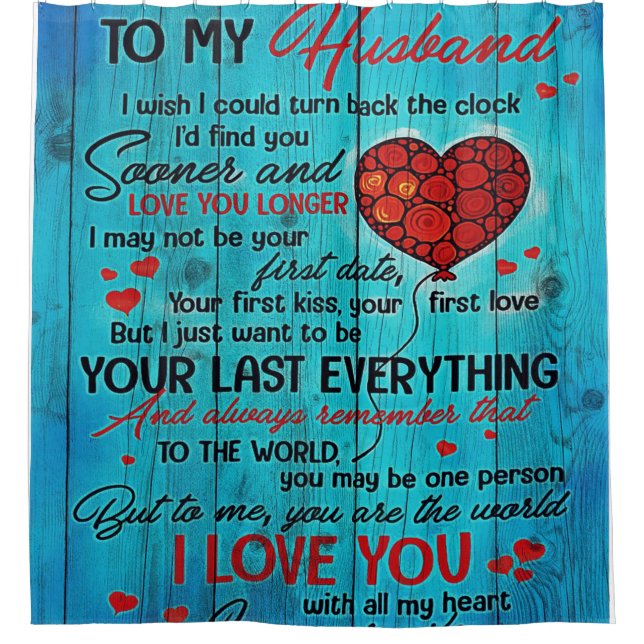 TO MY Husband
I wish I could turn back the clock
I'd find you
Sooner and
LOVE YOU LONGER
I may not be your
first date,
Your first kiss, your first love
But I just want to be
YOUR LAST EVERYTHING
And always remember that
TO THE WORLD,
you may be one person
But to me, you are the world
I LOVE YOU
with all my heart